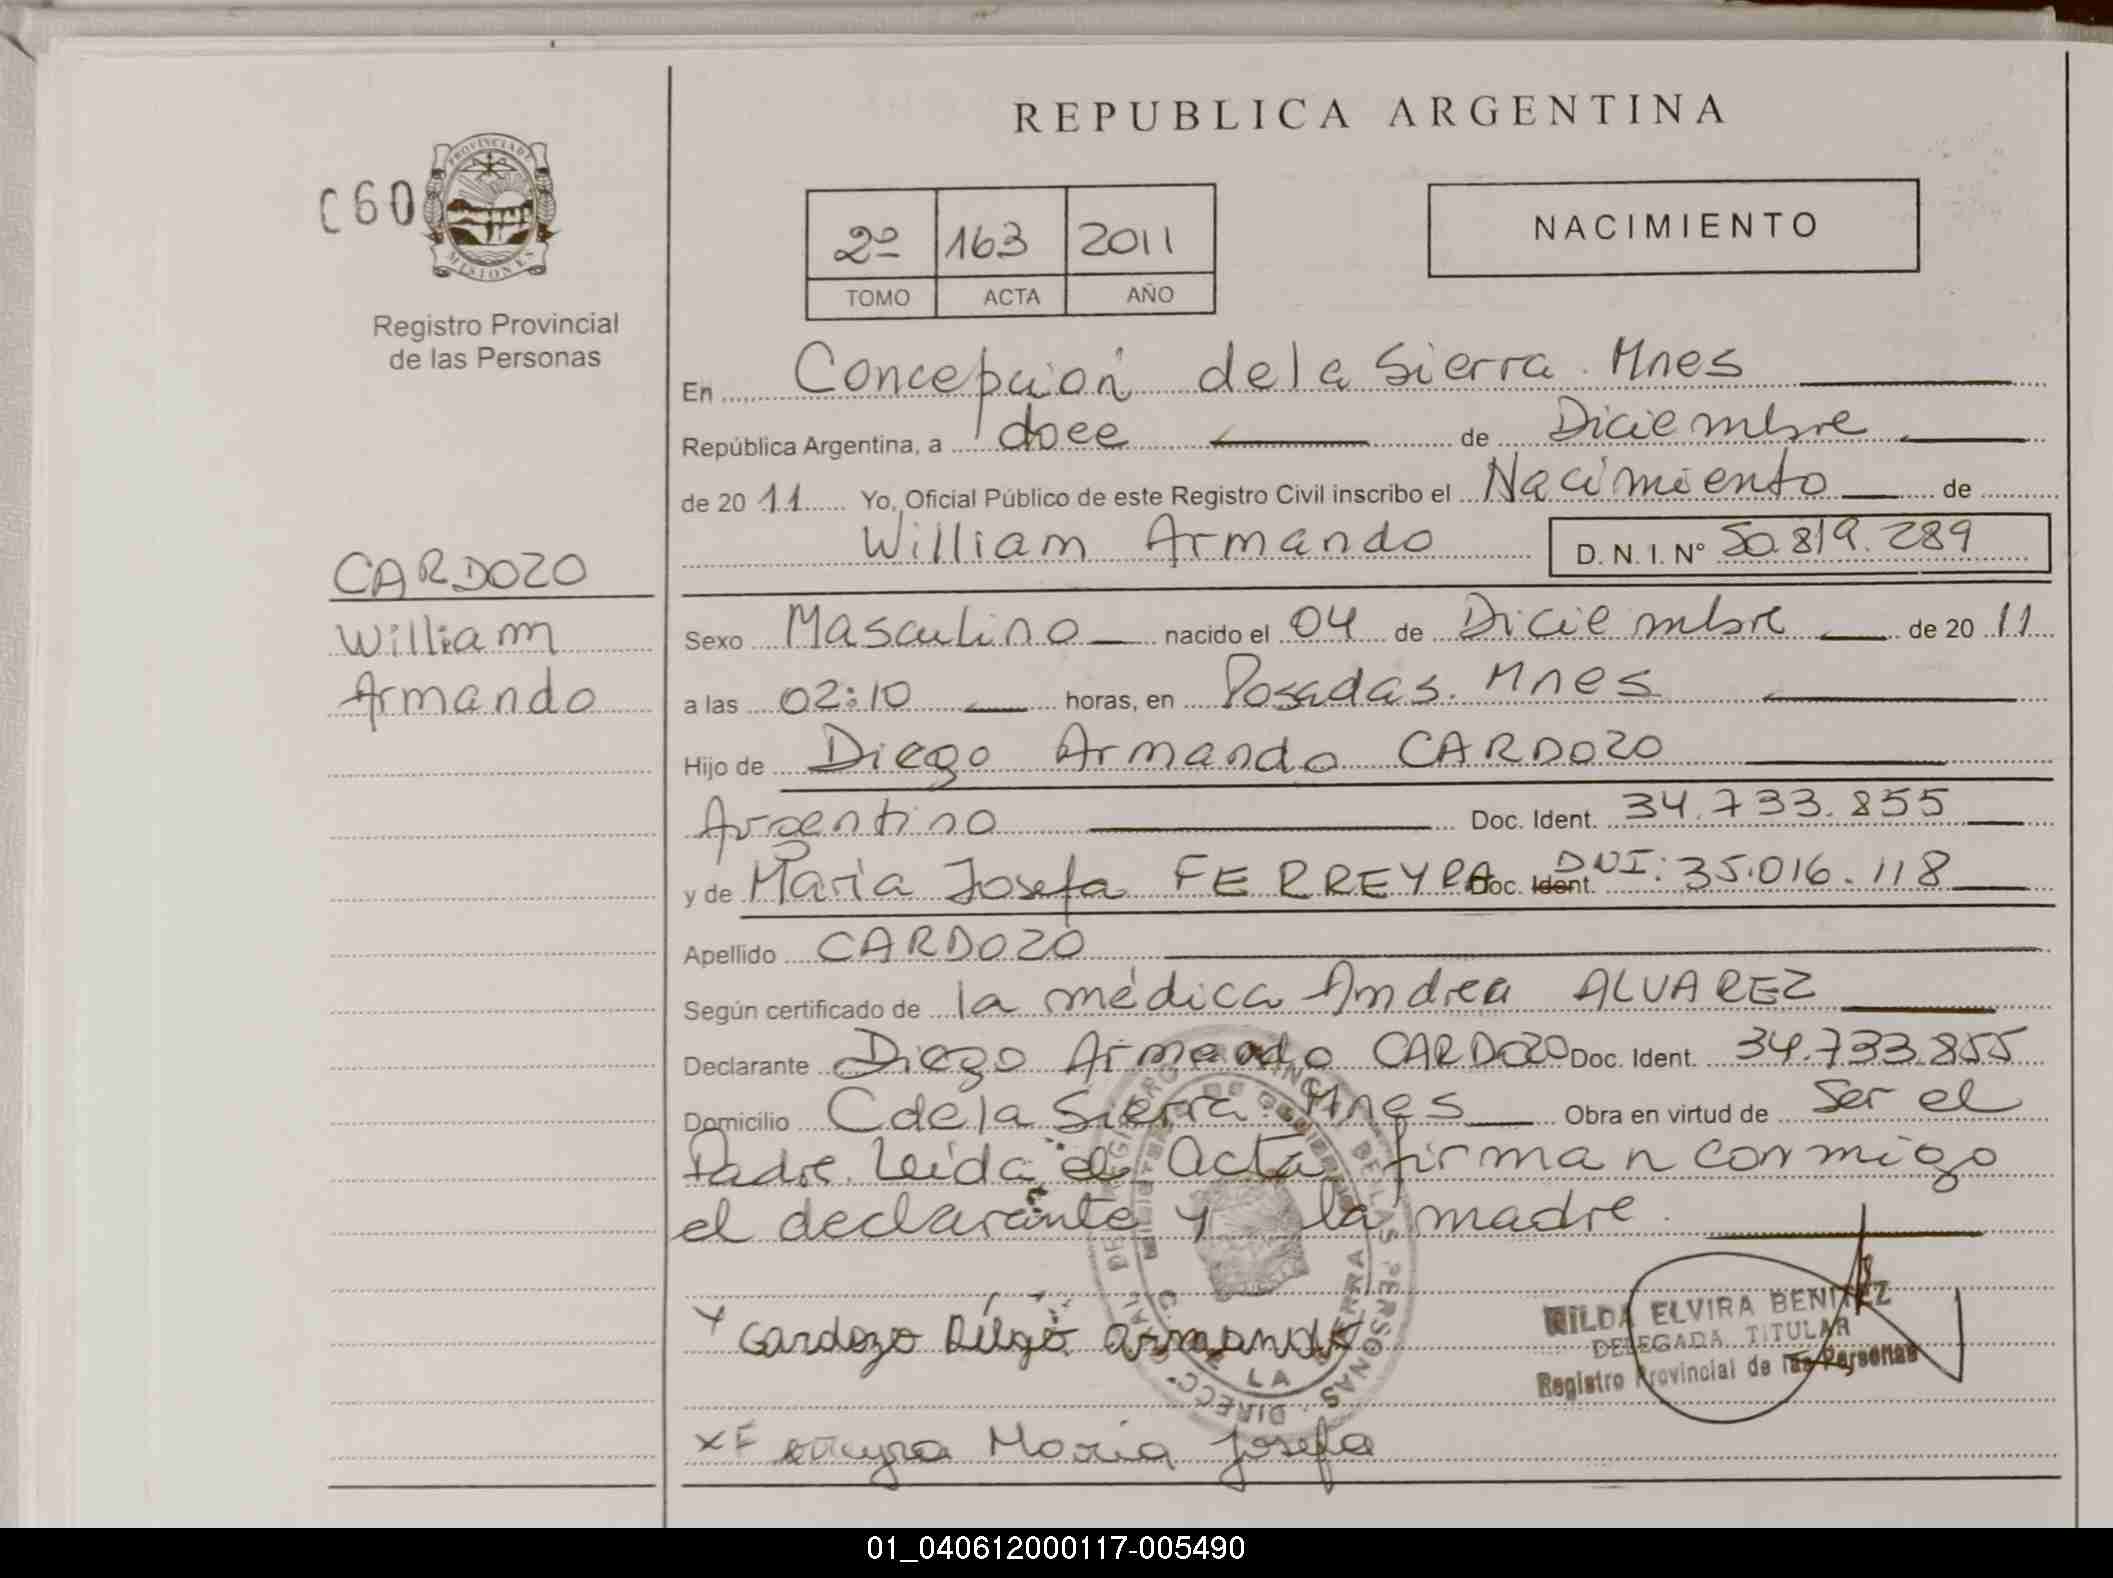 REPUBLICA ARGENTINA
C60
PROVINCIA DE
MISIONES
Registro Provincial
de las Personas
2º 163 2011
TOMO ACTA AÑO
NACIMIENTO
En Concepción de la Sierra. Mnes
República Argentina, a doce de Diciembre
de 20 11 Yo, Oficial Público de este Registro Civil inscribo el Nacimiento de
William Armando D. N. I. Nº 50.819.289
CARDOZO
William
Armando
Sexo Masculino nacido el 04 de Diciembre de 20 11
a las 02:10 horas, en Posadas. Mnes
Hijo de Diego Armando CARDOZO
Argentino Doc. Ident. 34.733.855
y de Maria Josefa FERREYRA Doc. Ident. DNI: 35.016.118
Apellido CARDOZO
Según certificado de la médica Andrea ALVAREZ
Declarante Diego Armando CARDOZO Doc. Ident. 34.733.855
Domicilio C de la Sierra. Mnes Obra en virtud de Ser el
Padre. Leída el Acta firman conmigo
el declarante y la madre.
x Cardozo Diego armando
HILDA ELVIRA BENITEZ
DELEGADA TITULAR
Registro Provincial de las Personas
x Ferreyra Maria Josefa
01_040612000117-005490